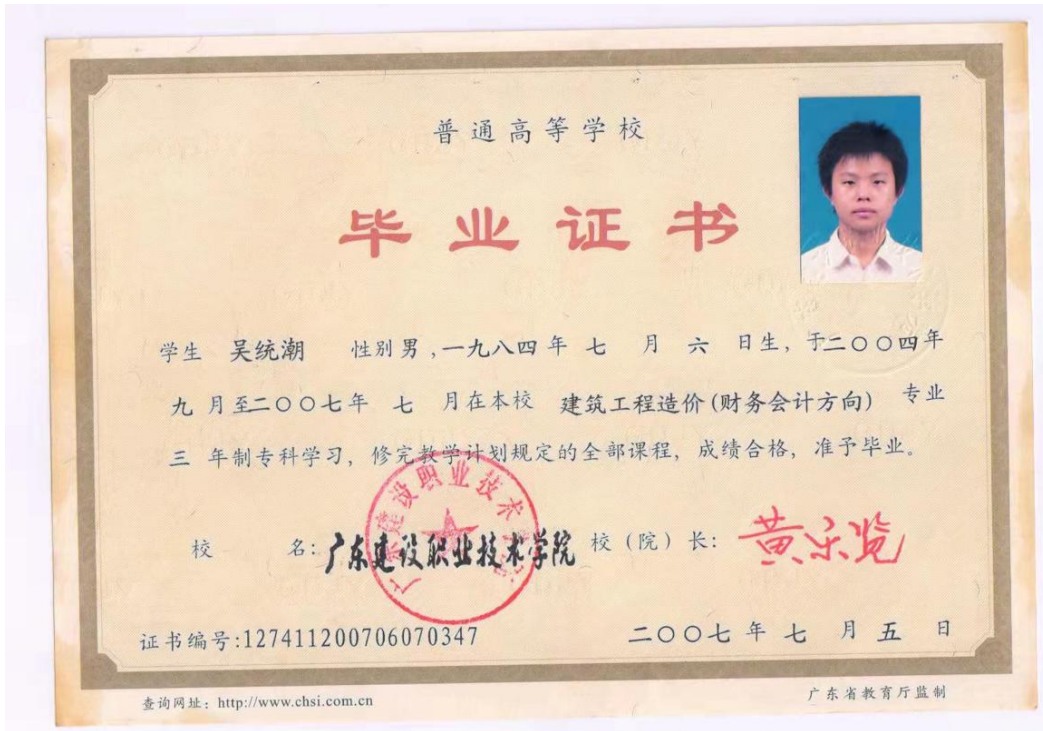 普通高等学校
毕业证书
学生 吴统潮 性别 男 ,一九八四 年 七 月 六 日生，于二〇〇四年
九 月至二〇〇七年 七 月在本校 建筑工程造价(财务会计方向) 专业
三 年制专科学习，修完教学计划规定的全部课程，成绩合格，准予毕业。
校 名：广东建设职业技术学院 校（院）长：黄乐览
证书编号:127411200706070347 二〇〇七 年 七 月 五 日
查询网址：http://www.chsi.com.cn 广东省教育厅监制